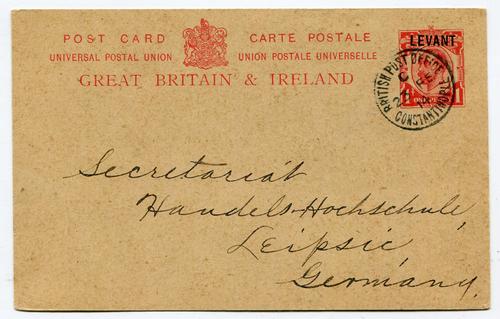 POST CARD CARTE POSTALE
UNIVERSAL POSTAL UNION UNION POSTALE UNIVERSELLE
GREAT BRITAIN & IRELAND
LEVANT
BRITISH POST OFFICE
CONSTANTINOPLE
Secretariát
Handels-Hochschule,
Leipsic,
Germany.